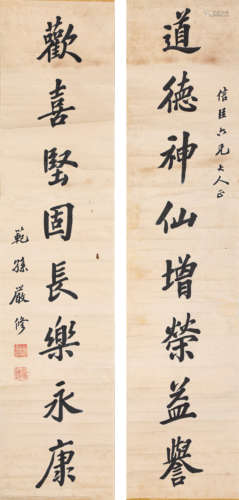 信臣六兄大人正
道德神仙增榮益譽
歡喜堅固長樂永康
範孫嚴修